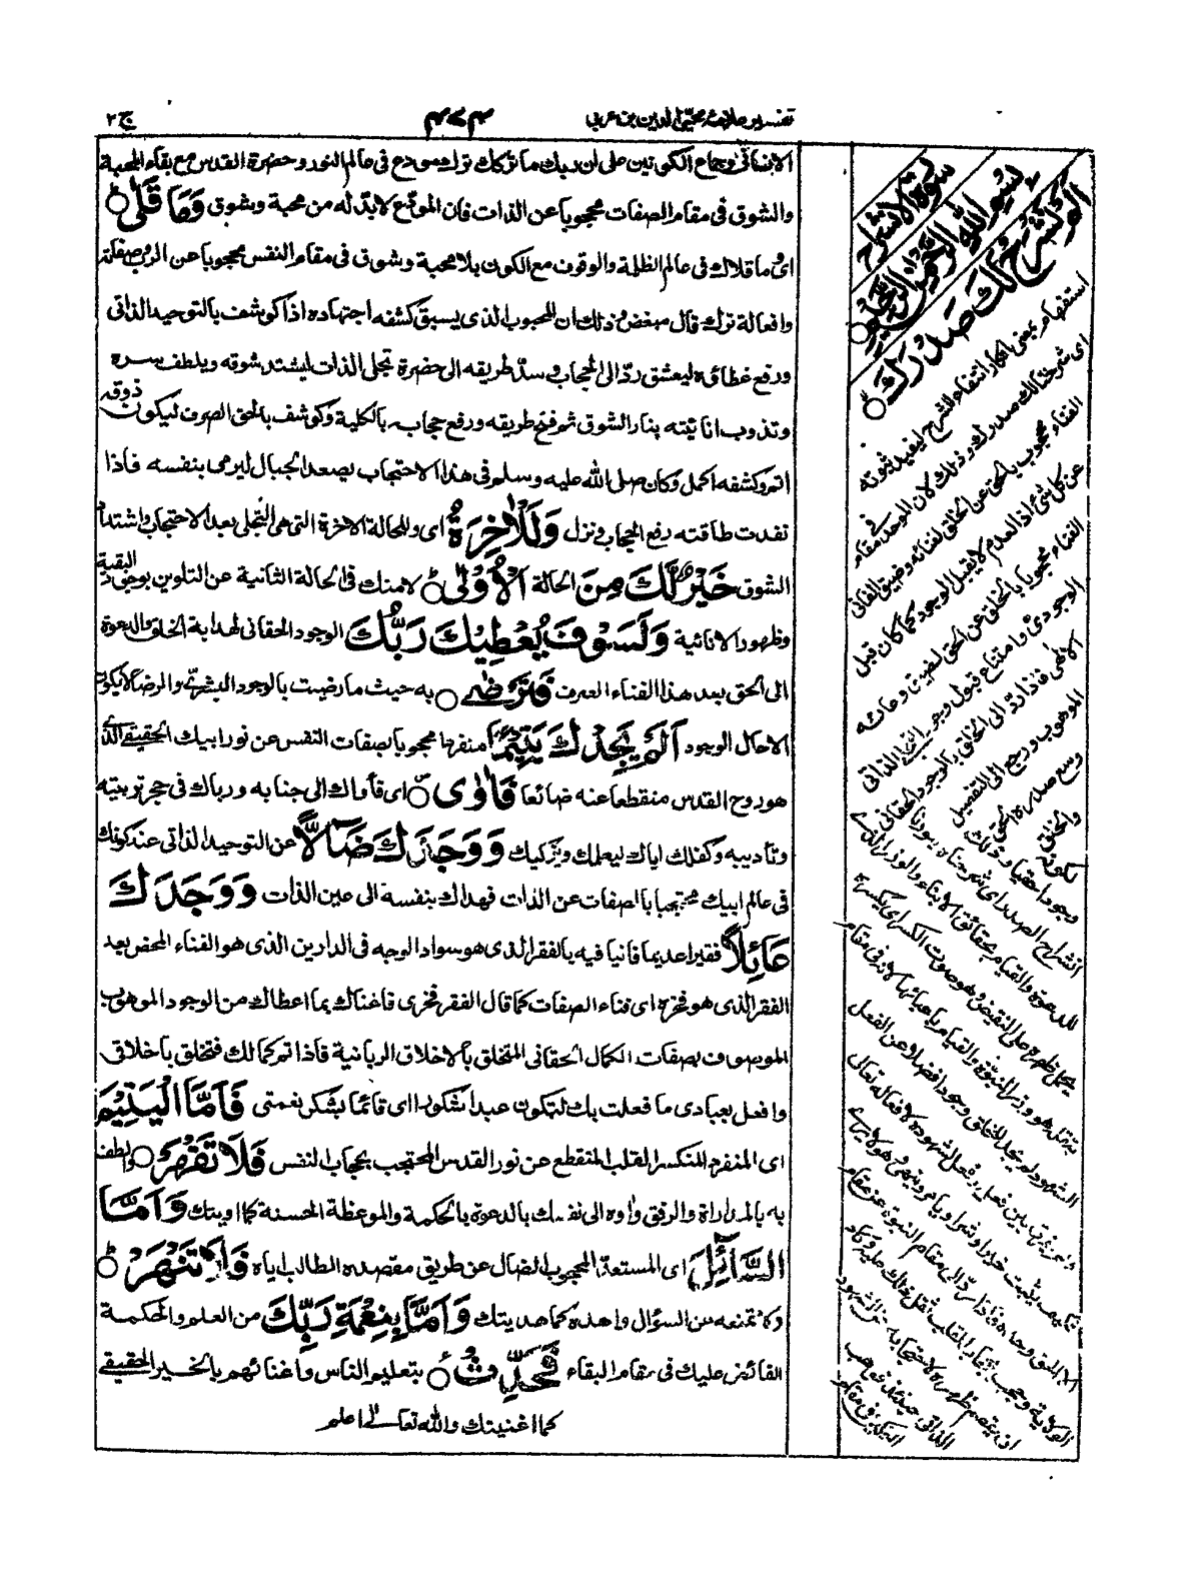 تفسير علامه محيي الدين بن عربي
ج ٢
الانساني وجماع الكونين على ان ربك ما تركك ترك مودع في عالم النور وحضرة القدس مع بقاء المحبة
والشوق في مقام الصفات محجوبا عن الذات فان المودع لابد له من محبة وشوق وَمَا قَلٰى
اى وما قلاك في عالم الظلمة والوقوف مع الكون بلا محبة وشوق في مقام النفس محجوبا عن الرب وصفاته
وافعاله ترك قال مبغض وذلك ان المحبوب الذى يسبق كشفه اجتهاده اذا كوشف بالتوحيد الذاتى
ورفع غطاؤه ليعشق رد الى الحجاب وسد طريقه الى حضرة تجلى الذات ليشتد شوقه ويلطف سره
وتذوب انانيته بنار الشوق ثم فتح طريقه ورفع حجابه بالكلية وكوشف بالحق الصرف ليكون ذوقه
اتم وكشفه اكمل وكان صلى الله عليه وسلم في هذا الاحتجاب يصعد الجبال ليرمى بنفسه فاذا
نفدت طاقته رفع الحجاب ونزل وَلَلْاٰخِرَةُ اى وللحالة الاخرة التى هى التجلى بعد الاحتجاب واشتداد
الشوق خَيْرٌ لَّكَ مِنَ الحالة الْاُوْلٰى لامنك في الحالة الثانية عن التلوين بوجود البقية
وظهور الانائية وَلَسَوْفَ يُعْطِيْكَ رَبُّكَ الوجود الحقانى لهداية الخلق والدعوة
الى الحق بعد هذا الفناء الصرف فَتَرْضٰى به حيث ما رضيت بالوجود البشرى والرضا لا يكون
الا حال الوجود اَلَمْ يَجِدْكَ يَتِيْمًا منفردا محجوبا بصفات النفس عن نور ابيك الحقيقى الذى
هو روح القدس منقطعا عنه ضائعا فَاٰوٰى اى فأواك الى جنابه ورباك في حجر تربيته
وتأديبه وكفلك اياك ليعلمك ويزكيك وَوَجَدَكَ ضَآلًّا عن التوحيد الذاتى عند كونك
في عالم ابيك محتجبا بالصفات عن الذات فهداك بنفسه الى عين الذات وَوَجَدَكَ
عَائِلًا فقيرا عديما فانيا فيه بالفقر الذى هو سواد الوجه في الدارين الذى هو الفناء المحض بعد
الفقر الذى هو فخره اى فناء الصفات كما قال الفقر فخرى فاغناك بما اعطاك من الوجود الموهوب
الموصوف بصفات الكمال الحقانى المتخلق بالاخلاق الربانية فاذا تم كمالك فتخلق بأخلاقى
وافعل بعبادى ما فعلت بك لتكون عبدا شكورا اى قائما بشكر نعمتى فَاَمَّا الْيَتِيْمَ
اى المنفرد المنكسر القلب المنقطع عن نور القدس المحتجب بحجاب النفس فَلَا تَقْهَرْ والطف
به بالمداراة والرفق واوه الى نفسك بالدعوة بالحكمة والموعظة الحسنة كما اويتك وَاَمَّا
السَّآئِلَ اى المستعد المحجوب الضال عن طريق مقصده الطالب اياه فَلَا تَنْهَرْ
ولا تمنعه من السؤال واهده كما هديتك وَاَمَّا بِنِعْمَةِ رَبِّكَ من العلم والحكمة
الفائض عليك في مقام البقاء فَحَدِّثْ بتعليم الناس واغنائهم بالخير الحقيقى
كما اغنيتك والله تعالى اعلم
سورة الانشراح
بسم الله الرحمن الرحيم
الم نشرح لك صدرك
استفهام بمعنى انكار انتفاء الشرح ليفيد ثبوته
اى شرحنا لك صدرك وذلك لان الموحد في مقام
الفناء محجوب بالحق عن الخلق لفنائه وضيق الفانى
عن كل شئ اذ العدم لا يقبل الوجود كما كان قبل
الفناء محجوبا بالخلق عن الحق لضيق وعائه
الوجودى وامتناع قبول وجوده التجلى الذاتى
الالهى فاذا رد الى الخلق بالوجود الحقانى
الموهوب ورجع الى التفصيل
وسع صدره الحق
والخلق
لكونه
وجودا حقيا وذلك
انشراح الصدر اى شرحناه بنورنا
للدعوة والقيام بحقائق الانباء والوزر الذى
يحمل ظهره على النقيض وهو صوت الكسر اى يكسره
بثقله هو وزر النبوة والقيام باعبائها لانه في مقام
الشهود